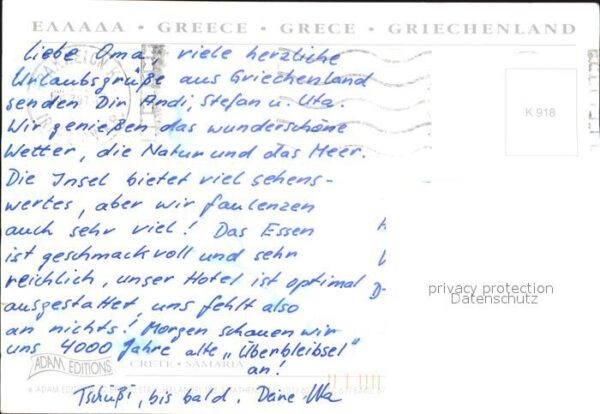 ΕΛΛΑΔΑ • GREECE • GRECE • GRIECHENLAND
Liebe Oma, viele herzliche
Urlaubsgrüße aus Griechenland
senden Dir Andi, Stefan u. Uta.
Wir genießen das wunderschöne
Wetter, die Natur und das Meer.
Die Insel bietet viel sehens-
wertes, aber wir faulenzen
auch sehr viel! Das Essen
ist geschmackvoll und sehr
reichlich, unser Hotel ist optimal
ausgestattet, uns fehlt also
an nichts! Morgen schauen wir
uns 4000 Jahre alte „Überbleibsel"
an!
Tschüßi, bis bald. Deine Uta
K 918
privacy protection
Datenschutz
ADAM EDITIONS
CRETE - SAMARIA
ADAM EDITIONS